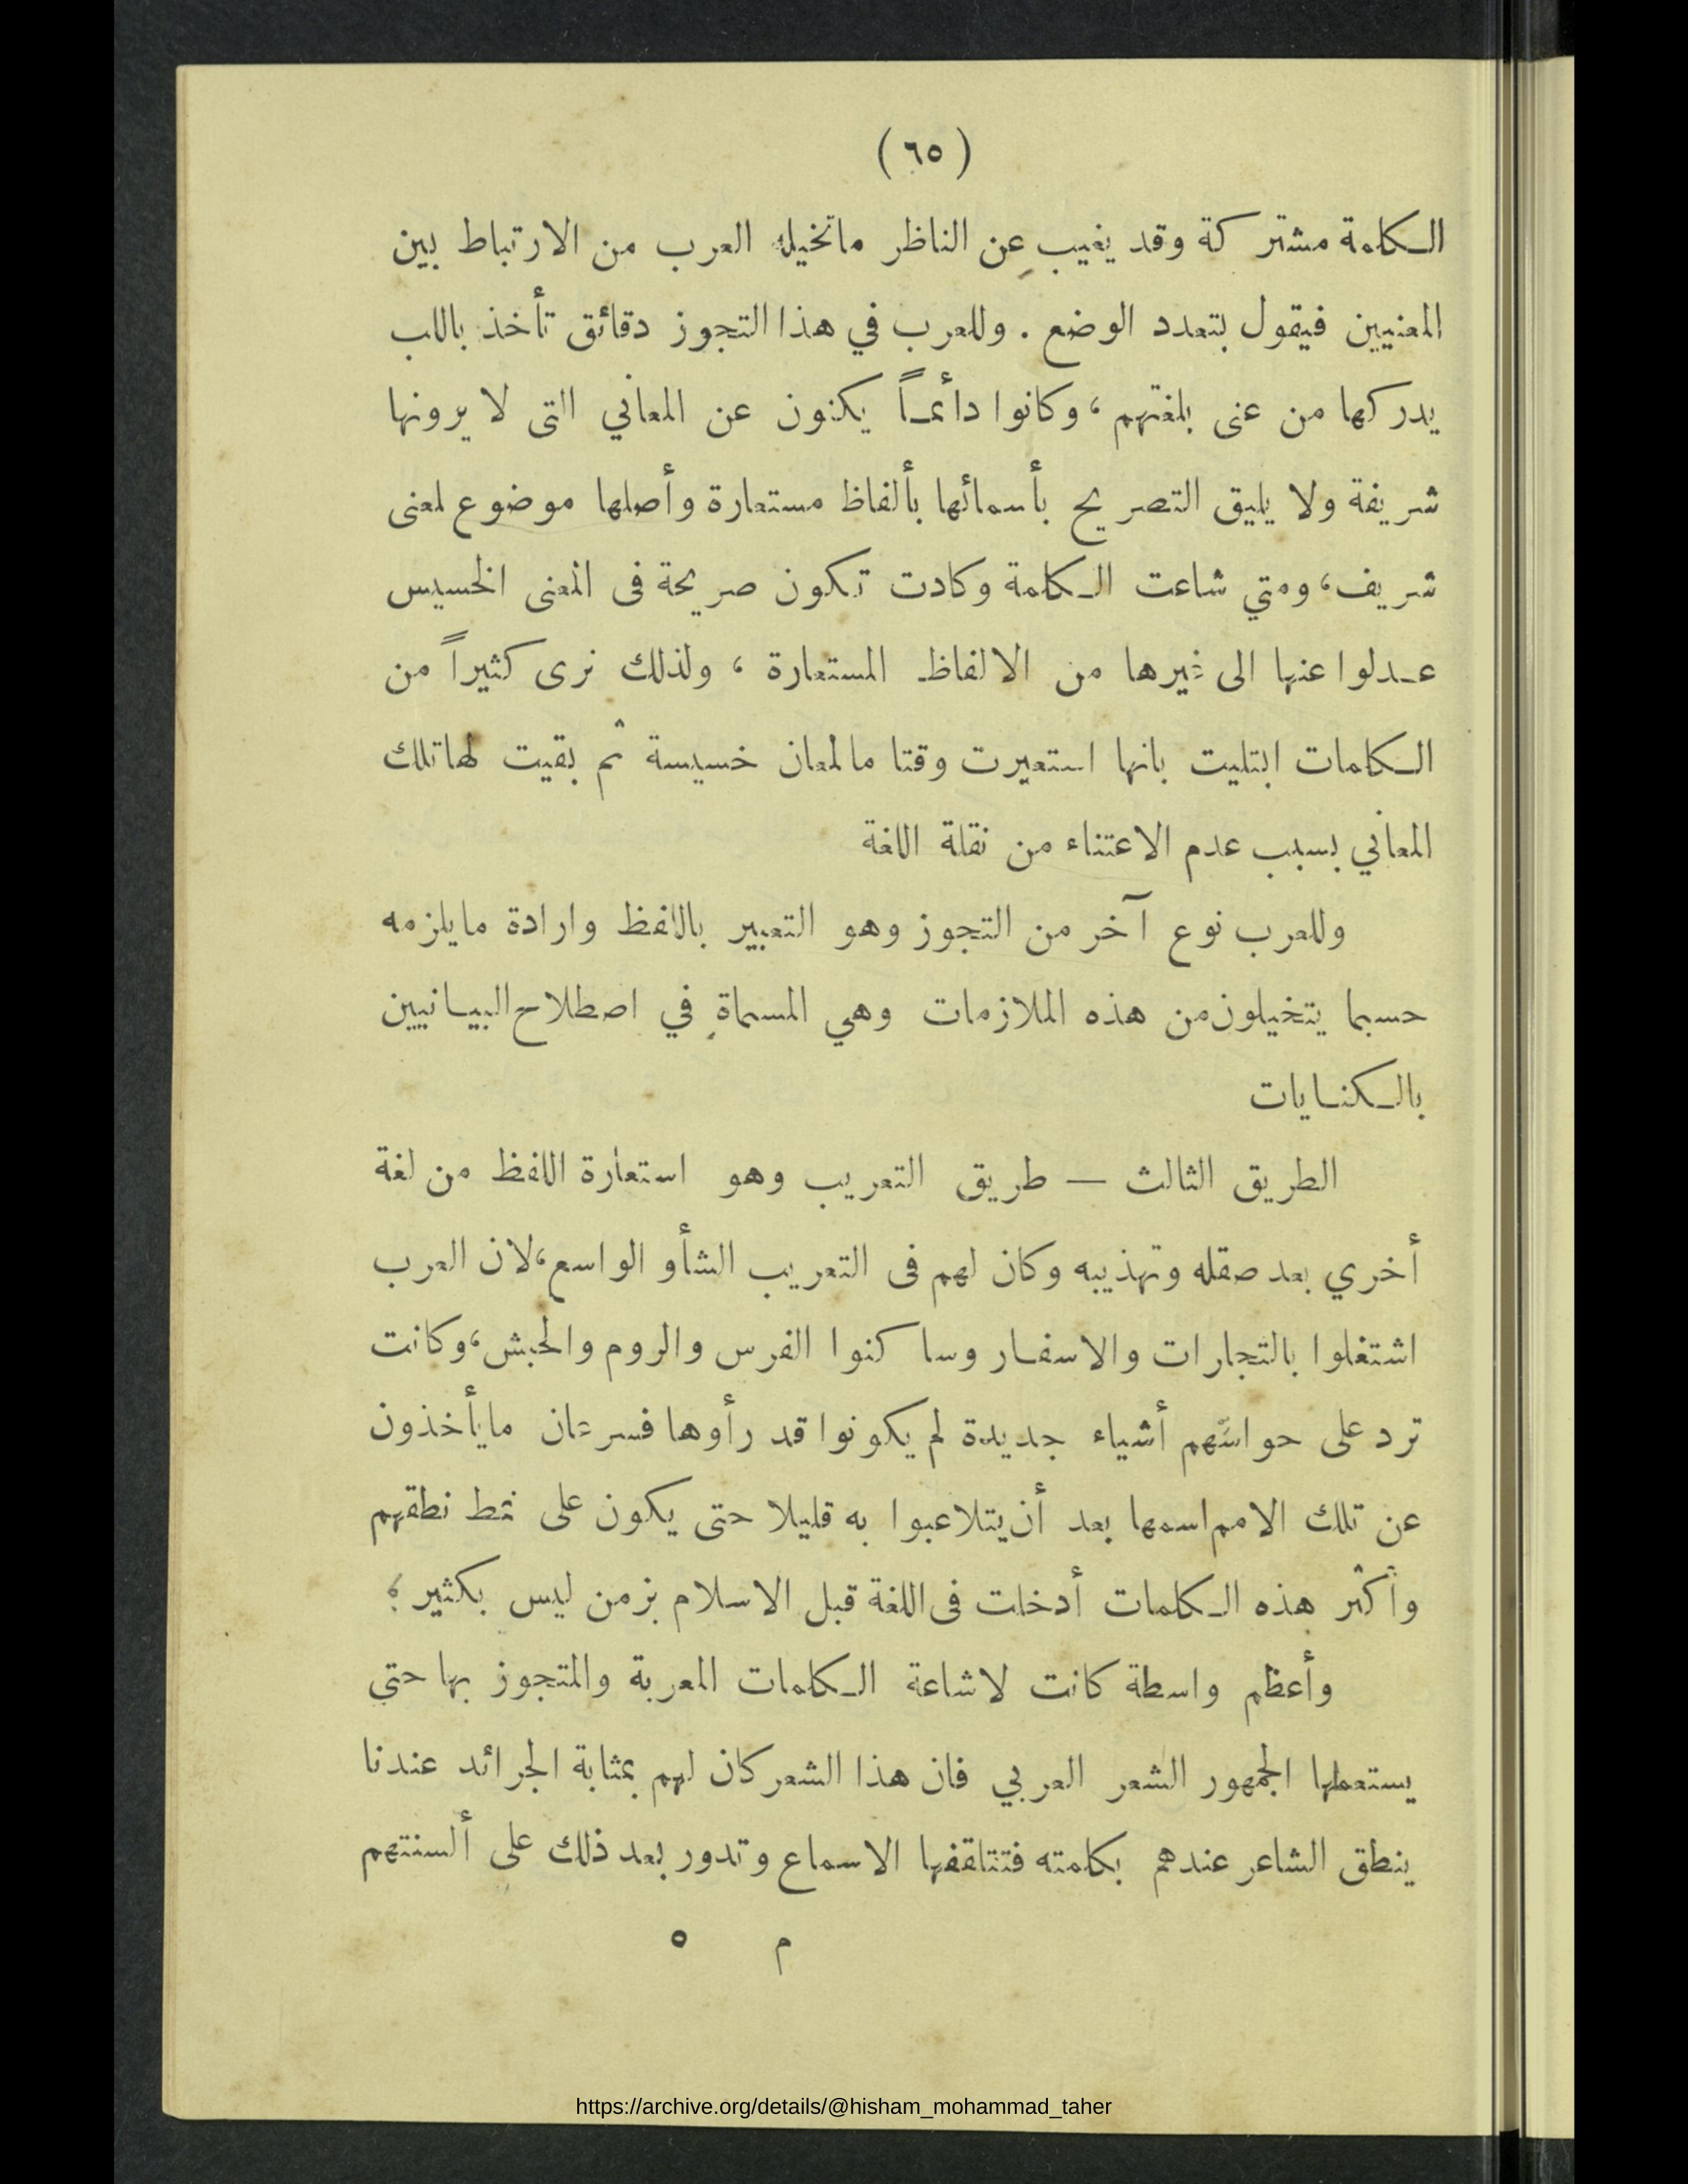 (٦٥)
الكلمة مشتركة وقد يغيب عن الناظر ماتخيله العرب من الارتباط بين
المعنيين فيقول بتعدد الوضع . وللعرب في هذا التجوز دقائق تأخذ باللب
يدركها من عنى بلغتهم ، وكانوا دائمـاً يكنون عن المعاني التى لا يرونها
شريفة ولا يليق التصريح بأسمائها بألفاظ مستعارة وأصلها موضوع لمعنى
شريف ، ومتي شاعت الكلمة وكادت تكون صريحة فى المعنى الخسيس
عـدلوا عنها الى غيرها من الالفاظ المستعارة ، ولذلك نرى كثيراً من
الكلمات ابتليت بانها استعيرت وقتا ما لمعان خسيسة ثم بقيت لها تلك
المعاني بسبب عدم الاعتناء من نقلة اللغة
وللعرب نوع آخر من التجوز وهو التعبير باللفظ وارادة مايلزمه
حسبما يتخيلون من هذه الملازمات وهي المسماة في اصطلاح البيـانيين
بالـكنـايات
الطريق الثالث — طريق التعريب وهو استعارة اللفظ من لغة
أخري بعد صقله وتهذيبه وكان لهم فى التعريب الشأو الواسع ، لان العرب
اشتغلوا بالتجارات والاسفـار وساكنوا الفرس والروم والحبش ، وكانت
ترد على حواسهم أشياء جديدة لم يكونوا قد رأوها فسرعان مايأخذون
عن تلك الامم اسمها بعد أن يتلاعبوا به قليلا حتى يكون على نمط نطقهم
وأكثر هذه الكلمات أدخلت فى اللغة قبل الاسلام بزمن ليس بكثير ،
وأعظم واسطة كانت لاشاعة الكلمات المعربة والمتجوز بها حتي
يستعملها الجمهور الشعر العربي فان هذا الشعر كان لهم بمثابة الجرائد عندنا
ينطق الشاعر عندهم بكلمته فتتلقفها الاسماع وتدور بعد ذلك على ألسنتهم
م ٥
https://archive.org/details/@hisham_mohammad_taher